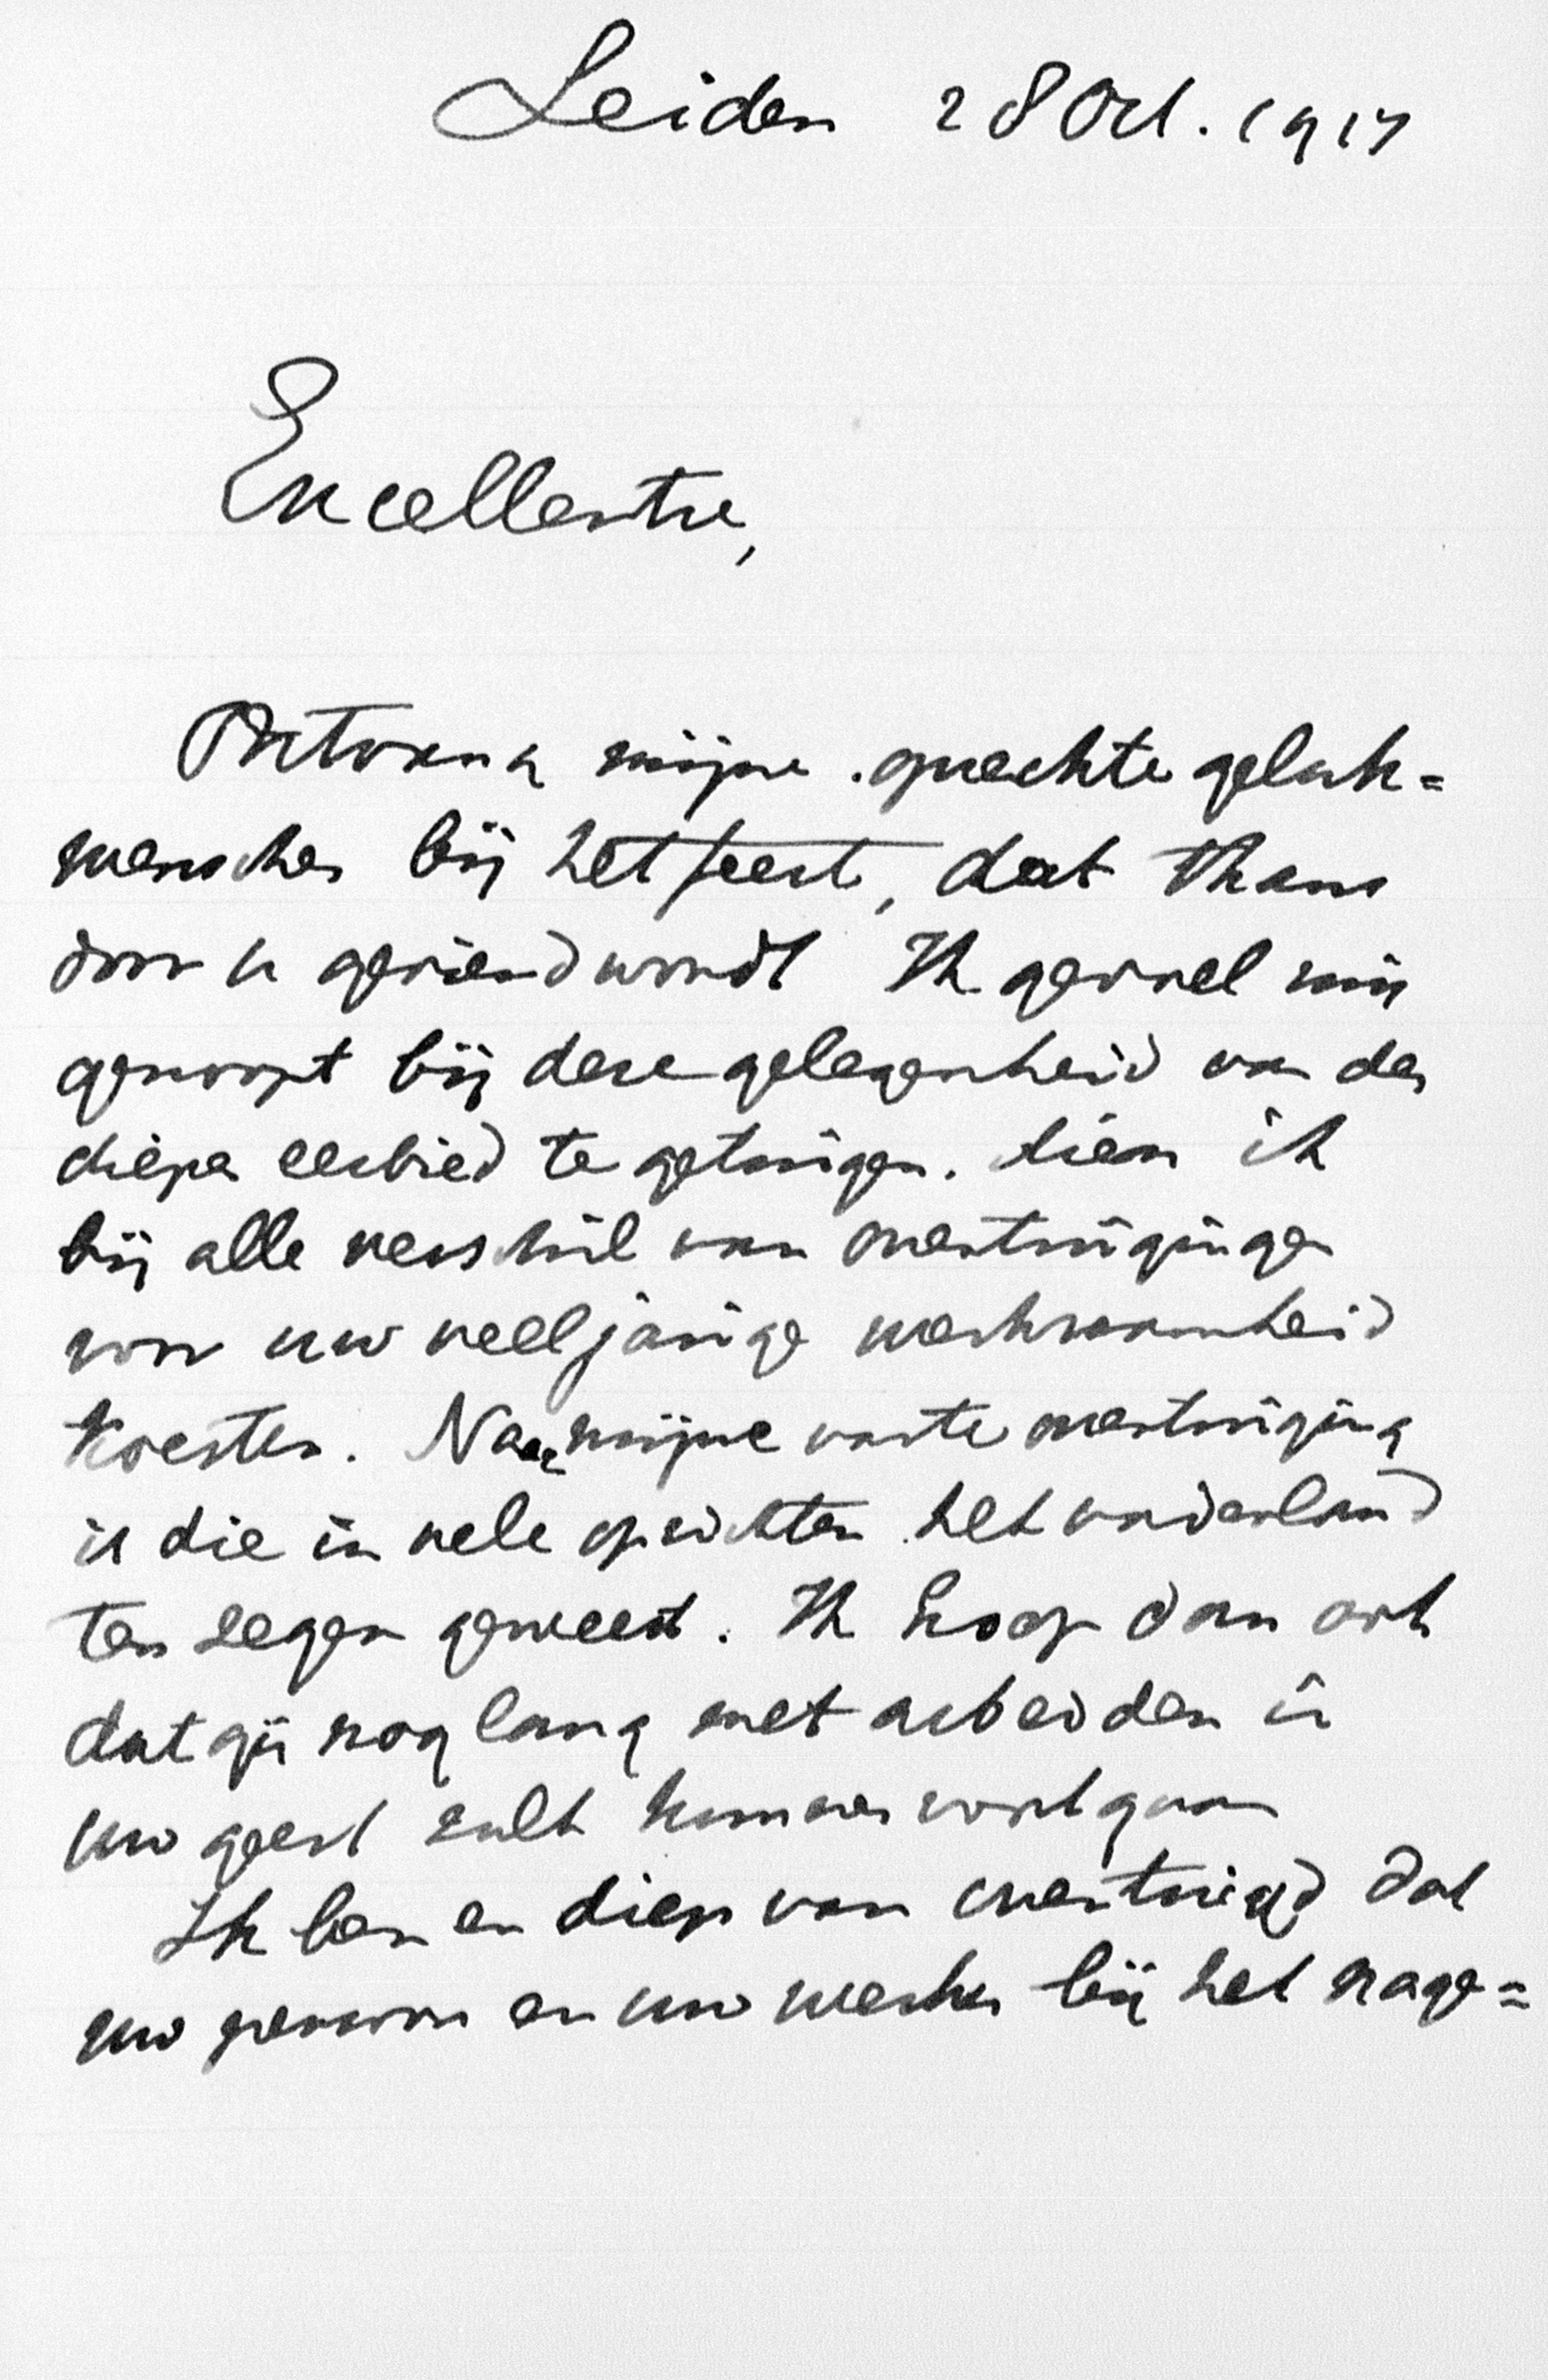 Leiden 28 Oct. 1917
Excellentie,
Ontvang mijne oprechte geluk=
wenschen bij het feest, dat thans
door u gevierd wordt Ik gevoel mij
genoopt bij deze gelegenheid van den
diepen eerbied te getuigen. dien ik
bij alle verschil van overtuigingen
voor uw veeljarige werkzaamheid
koester. Naar mijne vaste overtuiging
is die in vele opzichten het vaderland
ten zegen geweest. Ik hoop dan ook
dat gij nog lang met arbeiden in
uw geest zult kunnen voortgaan
Ik ben er diep van overtuigd dat
uw persoon en uw werken bij het nage=